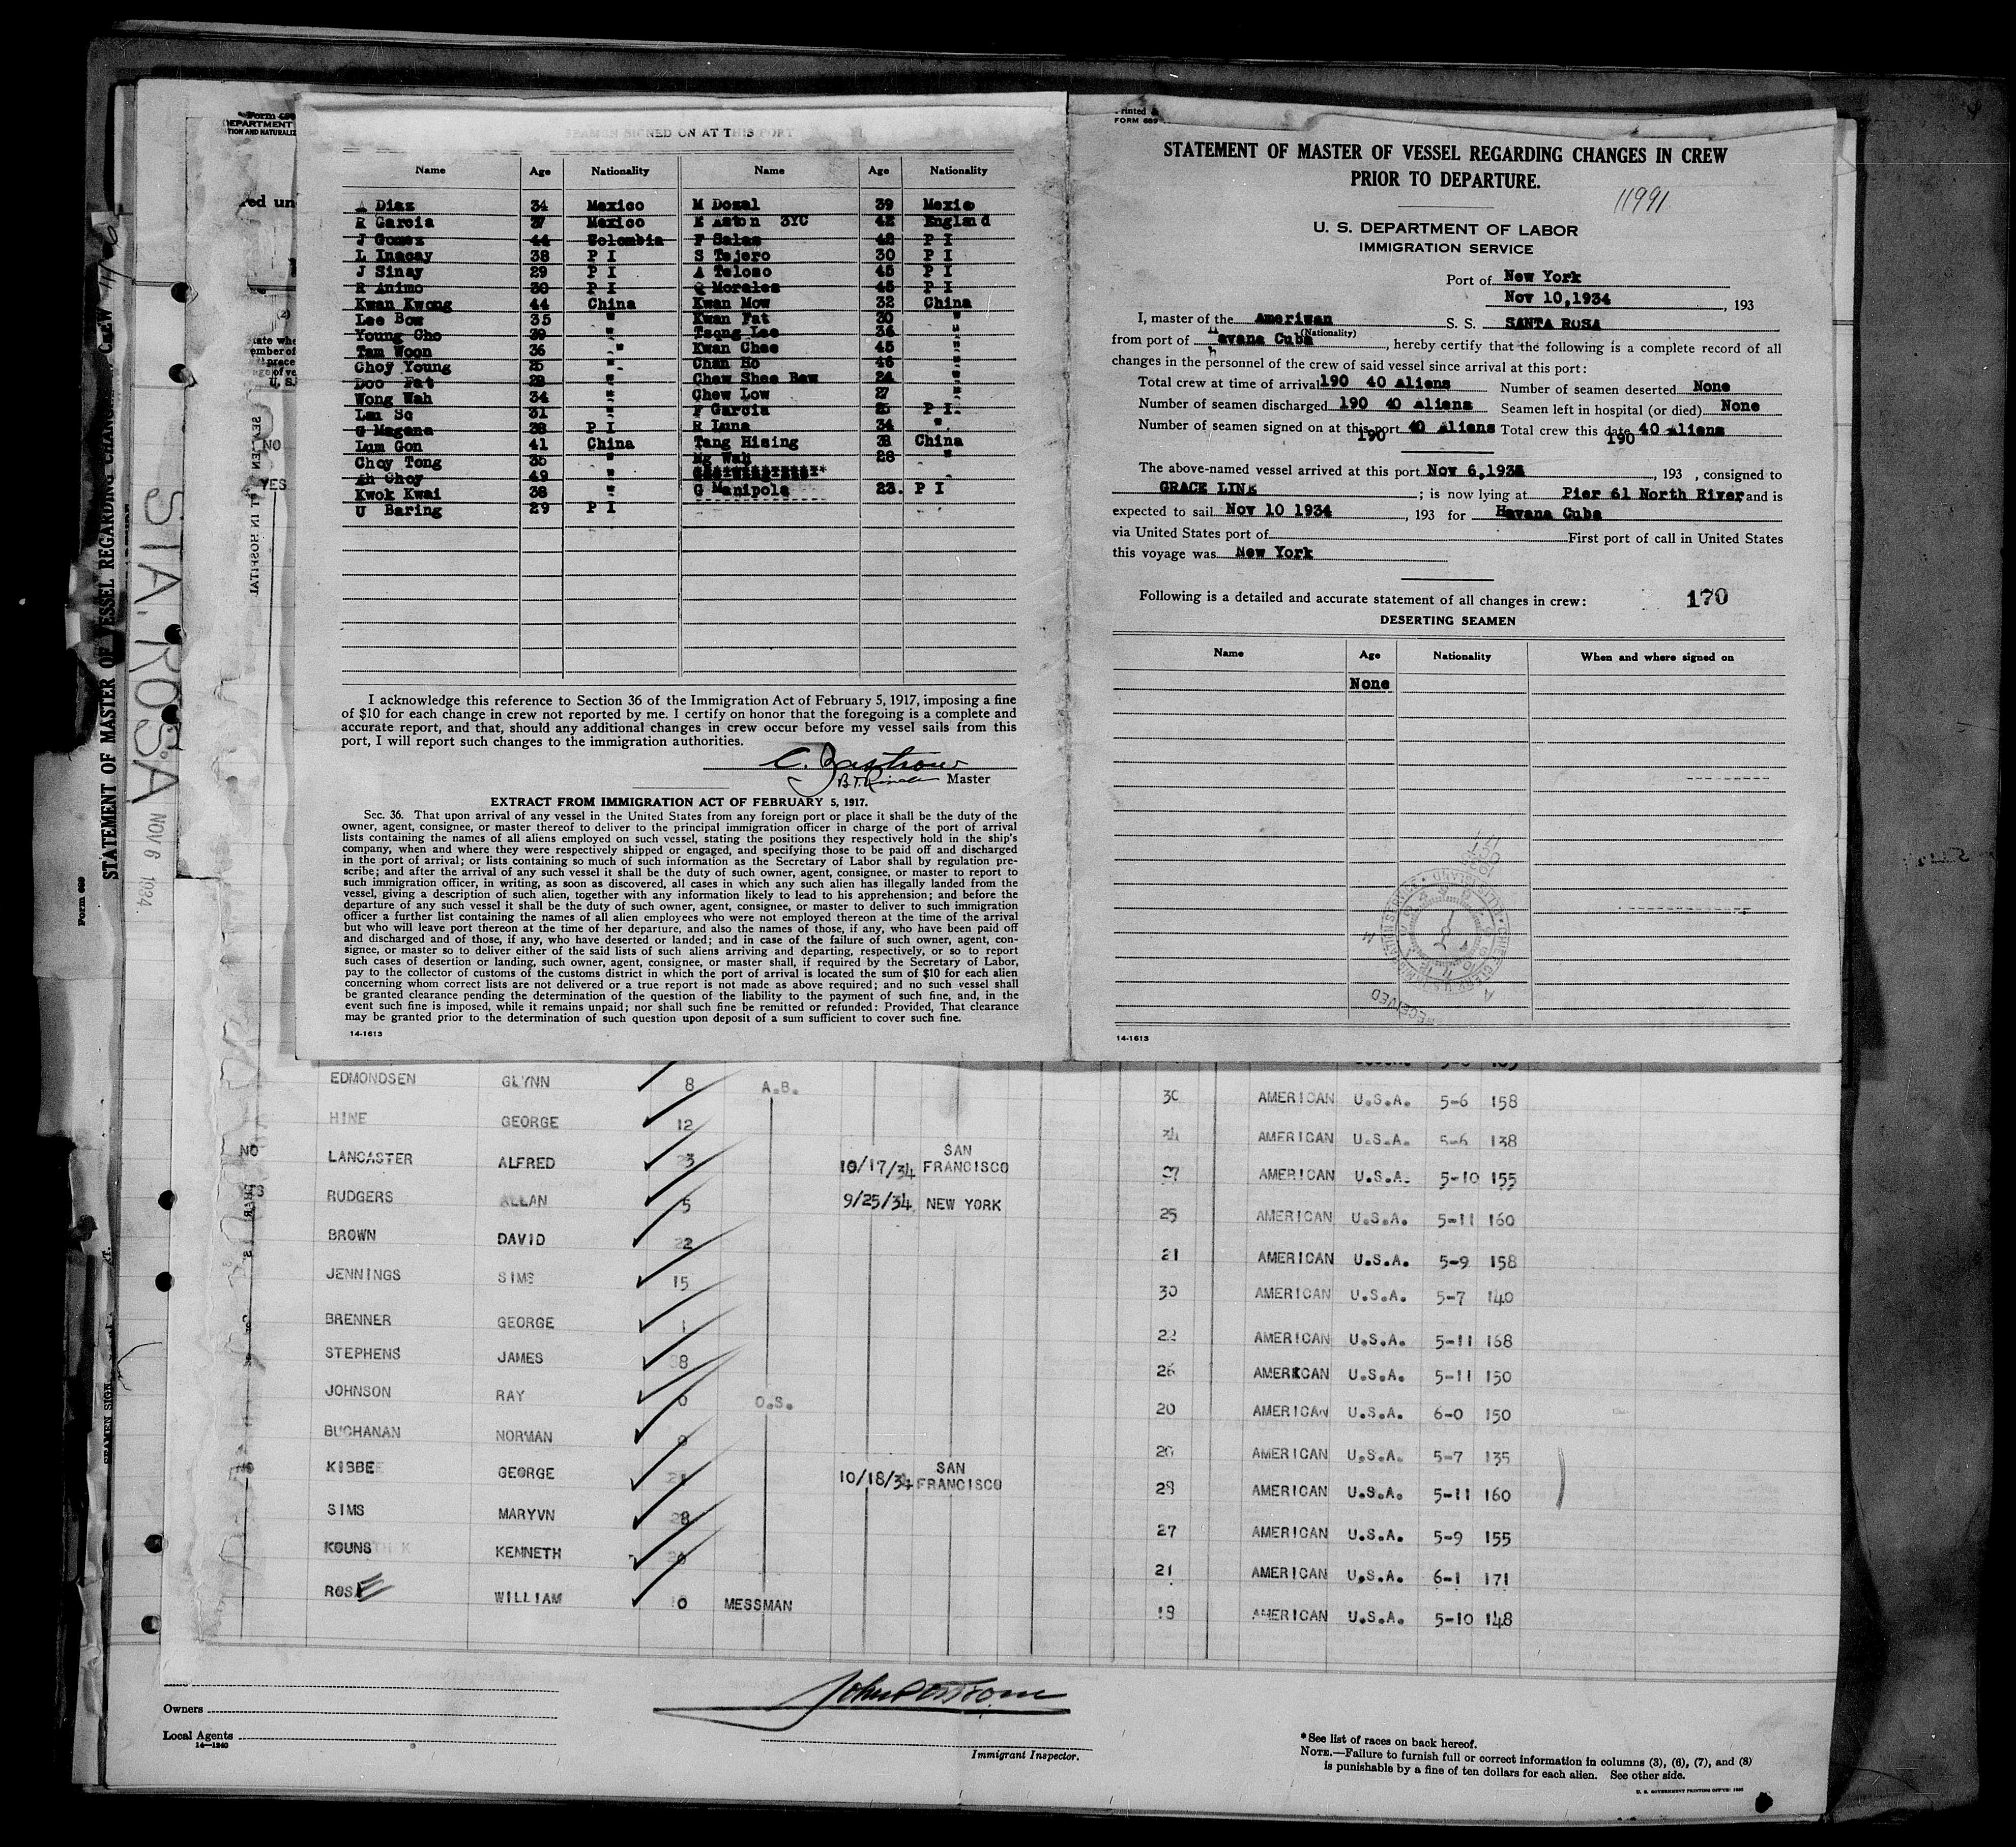 SEAMEN SIGNED ON AT THIS PORT
Name Age Nationality Name Age Nationality
A Diaz 34 Mexico M Dozal 39 Mexico
R Garcia 37 Mexico E Aston 3YC 42 England
J Gomez 44 Colombia F Salas 48 P I
L Inacay 38 P I S Tejero 30 P I
J Sinay 29 P I A Teloso 45 P I
R Animo 30 P I Q Morales 45 P I
Kwan Kwong 44 China Kwan Mow 32 China
Lee Bow 35 " Kwan Fat 30 "
Young Cho 39 " Tsong Lee 36 "
Tam Woon 36 " Kwan Chee 45 "
Choy Young 25 " Chan Ho 46 "
Doo Fat 28 " Chew Shee Baw 24 "
Wong Wah 34 " Chew Low 27 "
Lan So 31 " F Garcia 25 P I
G Magana 38 P I R Luna 34 "
Lum Gon 41 China Tang Hising 38 China
Choy Tong 35 " Mg Wah 28 "
Ah Choy 49 "
Kwok Kwai 38 " G Manipole 23. P I
U Baring 29 P I
I acknowledge this reference to Section 36 of the Immigration Act of February 5, 1917, imposing a fine
of $10 for each change in crew not reported by me. I certify on honor that the foregoing is a complete and
accurate report, and that, should any additional changes in crew occur before my vessel sails from this
port, I will report such changes to the immigration authorities.
C. Zastrow
Master
EXTRACT FROM IMMIGRATION ACT OF FEBRUARY 5, 1917.
Sec. 36. That upon arrival of any vessel in the United States from any foreign port or place it shall be the duty of the
owner, agent, consignee, or master thereof to deliver to the principal immigration officer in charge of the port of arrival
lists containing the names of all aliens employed on such vessel, stating the positions they respectively hold in the ship's
company, when and where they were respectively shipped or engaged, and specifying those to be paid off and discharged
in the port of arrival; or lists containing so much of such information as the Secretary of Labor shall by regulation pre-
scribe; and after the arrival of any such vessel it shall be the duty of such owner, agent, consignee, or master to report to
such immigration officer, in writing, as soon as discovered, all cases in which any such alien has illegally landed from the
vessel, giving a description of such alien, together with any information likely to lead to his apprehension; and before the
departure of any such vessel it shall be the duty of such owner, agent, consignee, or master to deliver to such immigration
officer a further list containing the names of all alien employees who were not employed thereon at the time of the arrival
but who will leave port thereon at the time of her departure, and also the names of those, if any, who have been paid off
and discharged and of those, if any, who have deserted or landed; and in case of the failure of such owner, agent, con-
signee, or master so to deliver either of the said lists of such aliens arriving and departing, respectively, or so to report
such cases of desertion or landing, such owner, agent, consignee, or master shall, if required by the Secretary of Labor,
pay to the collector of customs of the customs district in which the port of arrival is located the sum of $10 for each alien
concerning whom correct lists are not delivered or a true report is not made as above required; and no such vessel shall
be granted clearance pending the determination of the question of the liability to the payment of such fine, and, in the
event such fine is imposed, while it remains unpaid; nor shall such fine be remitted or refunded: Provided, That clearance
may be granted prior to the determination of such question upon deposit of a sum sufficient to cover such fine.
14-1613
FORM 689
STATEMENT OF MASTER OF VESSEL REGARDING CHANGES IN CREW
PRIOR TO DEPARTURE.
11991
U. S. DEPARTMENT OF LABOR
IMMIGRATION SERVICE
Port of New York
Nov 10,1934, 193
I, master of the Ameriwan S. S. SANTA ROSA
(Nationality)
from port of Havana Cuba, hereby certify that the following is a complete record of all
changes in the personnel of the crew of said vessel since arrival at this port:
Total crew at time of arrival 190 40 Aliens Number of seamen deserted None
Number of seamen discharged 190 40 Aliens Seamen left in hospital (or died) None
Number of seamen signed on at this port 190 40 Aliens Total crew this date 190 40 Aliens
The above-named vessel arrived at this port Nov 6,1934, 193 , consigned to
GRACE LINE; is now lying at Pier 61 North River and is
expected to sail Nov 10 1934, 193 for Havana Cuba
via United States port of First port of call in United States
this voyage was New York
Following is a detailed and accurate statement of all changes in crew: 170
DESERTING SEAMEN
Name Age Nationality When and where signed on
None
14-1613
STATEMENT OF MASTER OF VESSEL REGARDING CHANGES
STA. ROSA NOV 6 1934
Form 689
EDMONDSEN GLYNN 8 A.B. 30 AMERICAN U.S.A. 5-6 158
HINE GEORGE 12 34 AMERICAN U.S.A. 5-6 138
NO LANCASTER ALFRED 23 10/17/34 SAN FRANCISCO 27 AMERICAN U.S.A. 5-10 155
RUDGERS ALLAN 5 9/25/34 NEW YORK 25 AMERICAN U.S.A. 5-11 160
BROWN DAVID 22 21 AMERICAN U.S.A. 5-9 158
JENNINGS SIMS 15 30 AMERICAN U.S.A. 5-7 140
BRENNER GEORGE 1 22 AMERICAN U.S.A. 5-11 168
STEPHENS JAMES 8 26 AMERICAN U.S.A. 5-11 150
JOHNSON RAY 0 O.S. 20 AMERICAN U.S.A. 6-0 150
BUCHANAN NORMAN 9 20 AMERICAN U.S.A. 5-7 135
KIBBE GEORGE 21 10/18/34 SAN FRANCISCO 28 AMERICAN U.S.A. 5-11 160
SIMS MARYVN 28 27 AMERICAN U.S.A. 5-9 155
KOUNS KENNETH 21 AMERICAN U.S.A. 6-1 171
ROSE WILLIAM 0 MESSMAN 18 AMERICAN U.S.A. 5-10 148
Owners
Local Agents
14-1240
Immigrant Inspector.
*See list of races on back hereof.
NOTE.—Failure to furnish full or correct information in columns (3), (6), (7), and (8)
is punishable by a fine of ten dollars for each alien. See other side.
U. S. GOVERNMENT PRINTING OFFICE